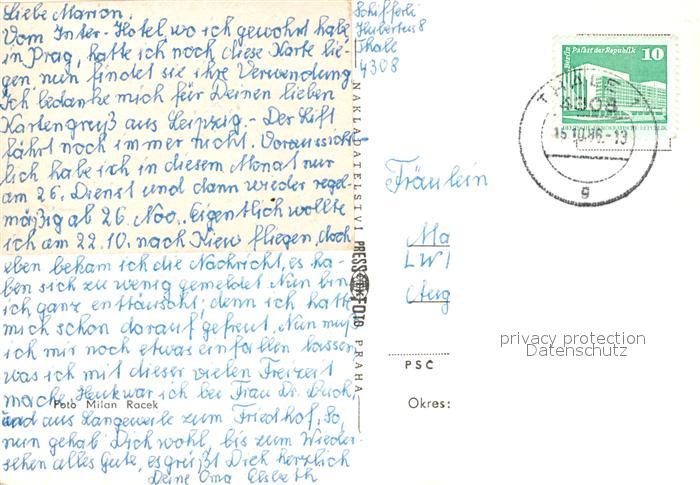 Liebe Marion.
Vom Inter-Hotel, wo ich gewohnt habe
in Prag, hatte ich noch diese Karte lie-
gen nun findet sie ihre Verwendung.
Ich bedanke mich für Deinen lieben
Kartengruß aus Leipzig. - Der Lift
fährt noch immer nicht. Voraussicht-
lich habe ich in diesem Monat nur
am 26. Dienst und dann wieder regel-
mäßig ab 26. Nov. Eigentlich wollte
ich am 22.10. nach Kiew fliegen, doch
eben bekam ich die Nachricht, es ha-
ben sich zu wenig gemeldet. Nun bin
ich ganz enttäuscht; denn ich hatte
mich schon darauf gefreut. Nun muß
ich mir noch etwas einfallen lassen,
was ich mit dieser vielen Freizeit
mache. Heut war ich bei Frau Dr.
und aus Langeweile zum Friedhof. So,
nun gehab Dich wohl, bis zum Wieder-
sehen alles Gute, es grüßt Dich herzlich
Deine Oma Elsbeth
Foto Milan Racek
Schifferli
Hubertus 8
Thale
4308
NAKLADATELSTVÍ PRESSFOTO PRAHA
Berlin Palast der Republik 10
DEUTSCHE DEMOKRATISCHE REPUBLIK
THALE 1
4308
15.10.86.-13
g
Fräulein
Ma
LWI
Aug
privacy protection
Datenschutz
PSČ
Okres: